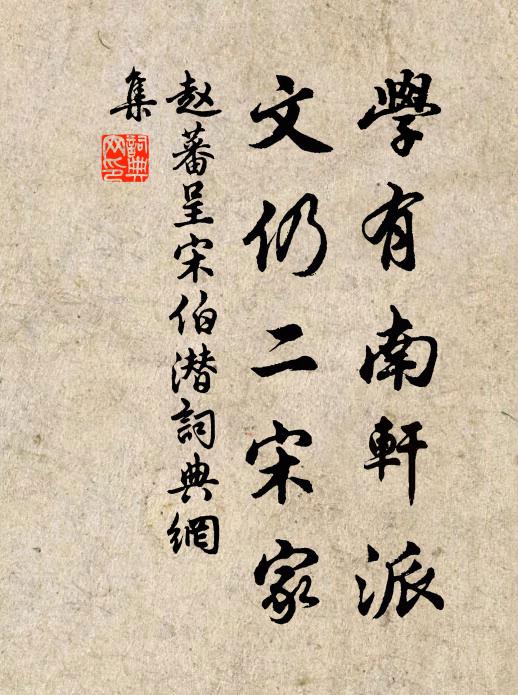 學有南軒派
文仍二宋家
赵蕃呈宋伯潜詞典網
集
詞典網印